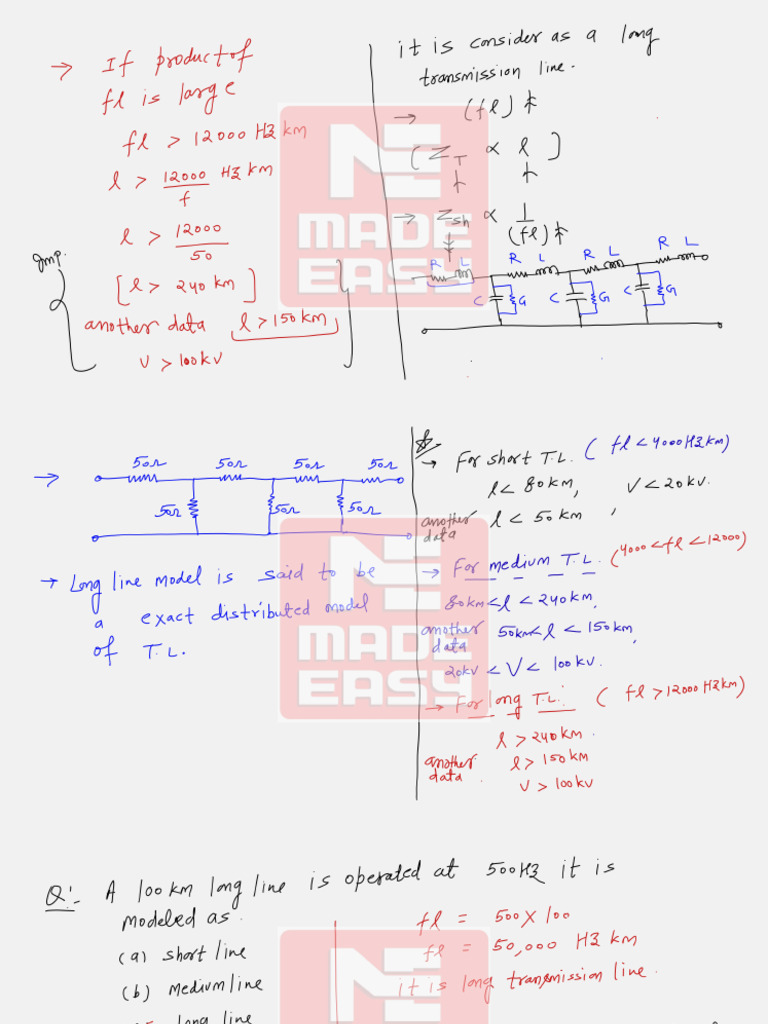 → If product of
fl is large
fl > 12000 Hz km
l > 12000/f Hz km
l > 12000/50
Imp.
[l > 240 km]
another data l > 150 km
V > 100 kV
it is consider as a long
transmission line.
→ (fl) ↑
(Z_T ∝ l)
↑ ↑
→ Z_sh ∝ 1/(fl)↑
R L R L R L R L
C G C G C G
MADE
EASY
→ 50Ω 50Ω 50Ω 50Ω
50Ω 50Ω 50Ω
→ Long line model is said to be
a exact distributed model
of T.L.
→ For short T.L. (fl < 4000 Hz km)
l < 80 km, V < 20 kV.
another data l < 50 km,
→ For medium T.L. (4000 < fl < 12000)
80 km < l < 240 km,
another data 50km < l < 150 km,
20kV < V < 100 kV.
→ For long T.L: (fl > 12000 Hz km)
l > 240 km.
another data. l > 150 km
V > 100 kV
MADE
EASY
Q:- A 100 km long line is operated at 500 Hz it is
modeled as.
(a) short line
(b) medium line
long line
fl = 500 X 100
fl = 50,000 Hz km
it is long transmission line.
MADE